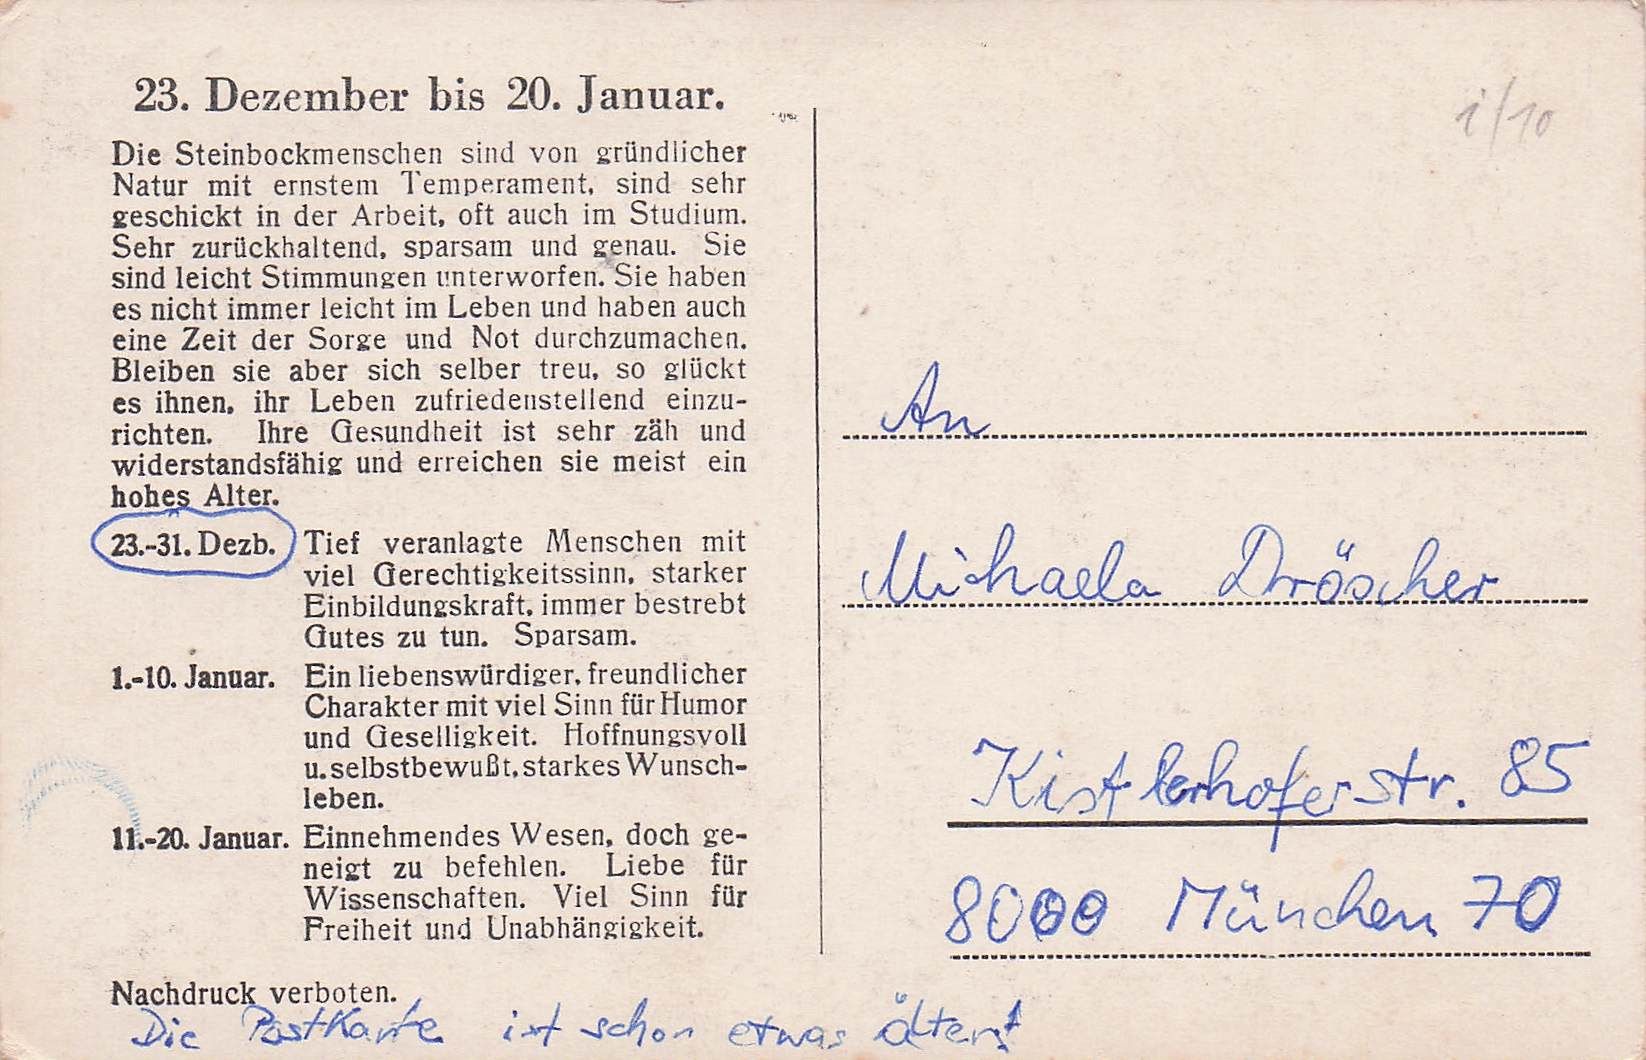 23. Dezember bis 20. Januar.
Die Steinbockmenschen sind von gründlicher
Natur mit ernstem Temperament, sind sehr
geschickt in der Arbeit, oft auch im Studium.
Sehr zurückhaltend, sparsam und genau. Sie
sind leicht Stimmungen unterworfen. Sie haben
es nicht immer leicht im Leben und haben auch
eine Zeit der Sorge und Not durchzumachen.
Bleiben sie aber sich selber treu, so glückt
es ihnen, ihr Leben zufriedenstellend einzu-
richten. Ihre Gesundheit ist sehr zäh und
widerstandsfähig und erreichen sie meist ein
hohes Alter.
23.-31. Dezb. Tief veranlagte Menschen mit
viel Gerechtigkeitssinn, starker
Einbildungskraft, immer bestrebt
Gutes zu tun. Sparsam.
1.-10. Januar. Ein liebenswürdiger, freundlicher
Charakter mit viel Sinn für Humor
und Geselligkeit. Hoffnungsvoll
u. selbstbewußt, starkes Wunsch-
leben.
11.-20. Januar. Einnehmendes Wesen, doch ge-
neigt zu befehlen. Liebe für
Wissenschaften. Viel Sinn für
Freiheit und Unabhängigkeit.
Nachdruck verboten.
Die Postkarte ist schon etwas älter!
i/10
An
Michaela Dröscher
Kistlerhoferstr. 85
8000 München 70